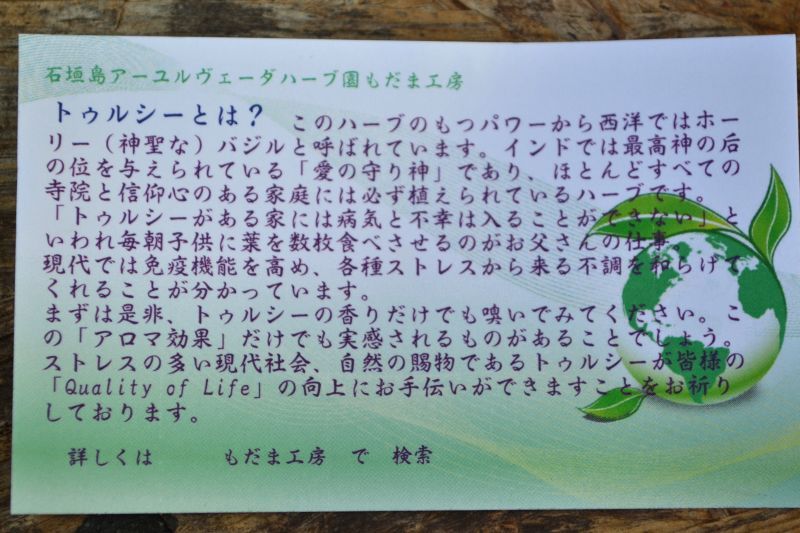 石垣島アーユルヴェーダハーブ園もだま工房
トゥルシーとは？ このハーブのもつパワーから西洋ではホー
リー（神聖な）バジルと呼ばれています。インドでは最高神の后
の位を与えられている「愛の守り神」であり、ほとんどすべての
寺院と信仰心のある家庭には必ず植えられているハーブです。
「トゥルシーがある家には病気と不幸は入ることができない」と
いわれ毎朝子供に葉を数枚食べさせるのがお父さんの仕事
現代では免疫機能を高め、各種ストレスから来る不調を和らげて
くれることが分かっています。
まずは是非、トゥルシーの香りだけでも嗅いでみてください。こ
の「アロマ効果」だけでも実感されるものがあることでしょう。
ストレスの多い現代社会、自然の賜物であるトゥルシーが皆様の
「Quality of Life」の向上にお手伝いができますことをお祈り
しております。
詳しくは もだま工房 で 検索